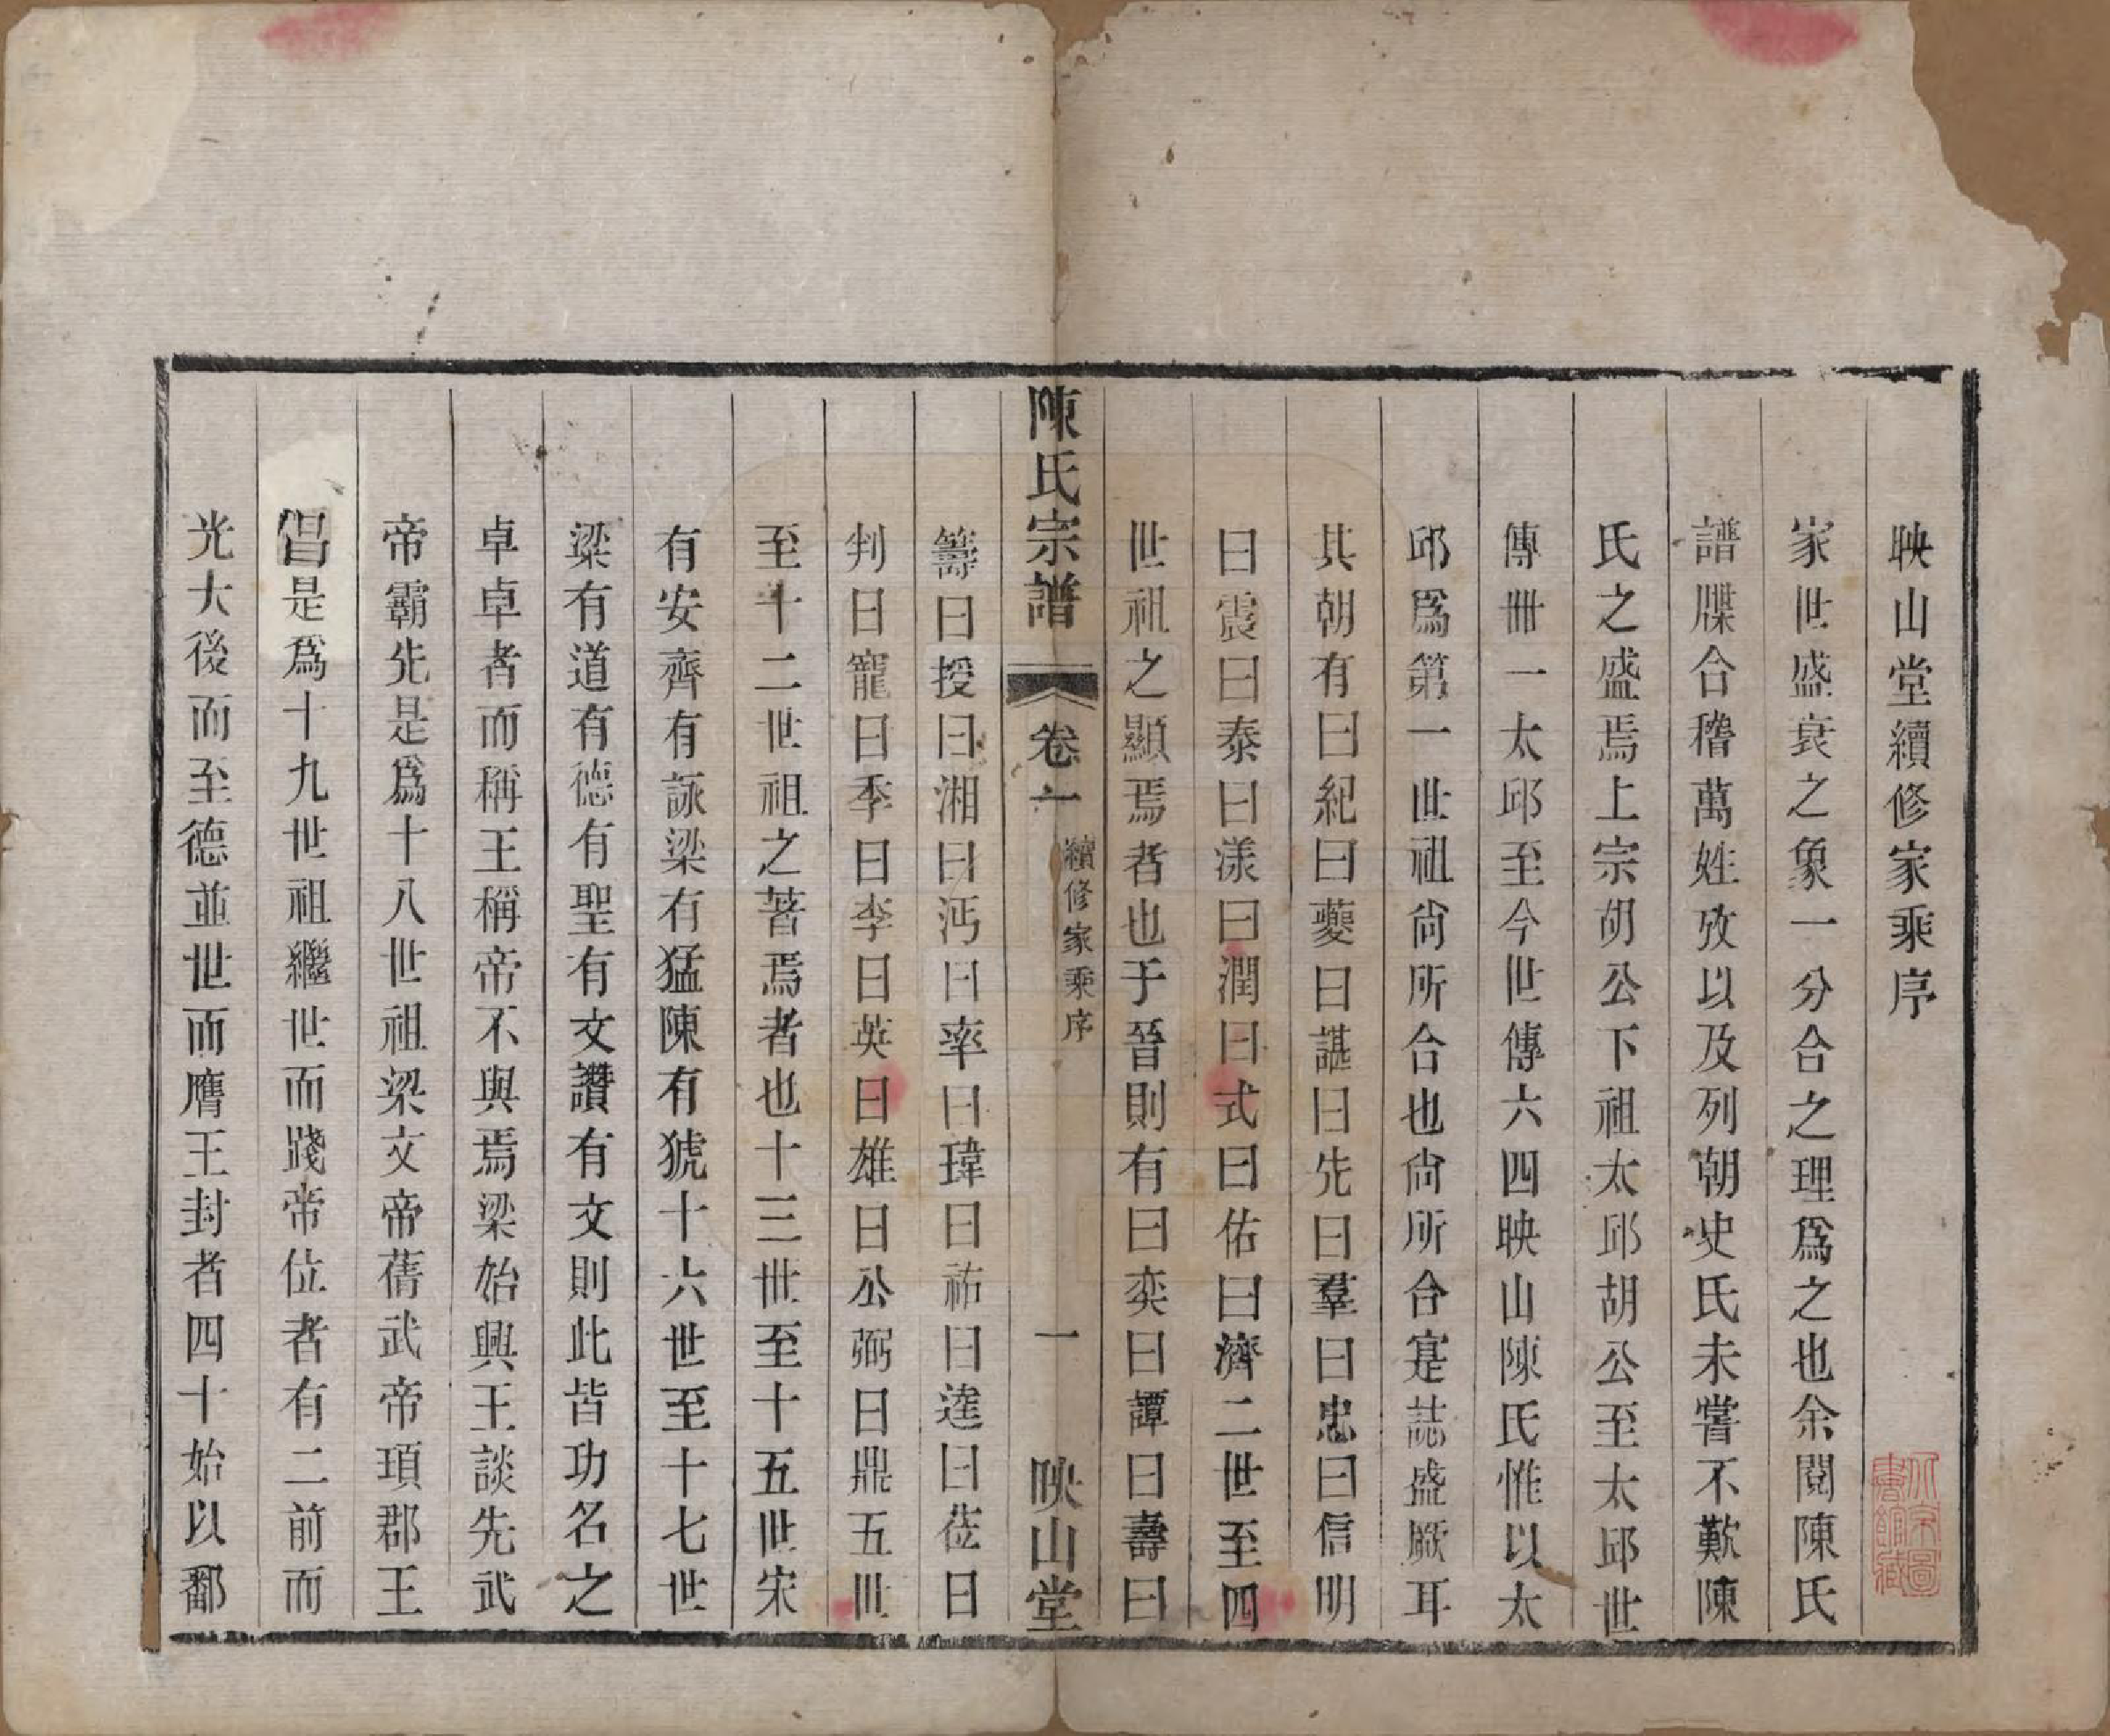 映山堂續修家乘序
家世盛衰之象一分合之理爲之也余閱陳氏
譜牒合稽萬姓攷以及列朝史氏未嘗不歎陳
氏之盛焉上宗胡公下祖太邱胡公至太邱世
傳卌一太邱至今世傳六四映山陳氏惟以太
邱爲第一世祖尙所合也尙所合寔誌盛厥耳
其朝有曰紀曰夔曰諶曰先曰羣曰忠曰信明
曰震曰泰曰漾曰潤曰式曰佑曰濟二世至四
世祖之顯焉者也于晉則有曰奕曰譚曰壽曰
陳氏宗譜
卷一
續修家乘序
一
映山堂
籌曰授曰湘曰沔曰率曰瑋曰祐曰達曰莅曰
判曰寵曰季曰李曰英曰雄曰公弼曰鼎五世
至十二世祖之著焉者也十三世至十五世宋
有安齊有詠梁有猛陳有猇十六世至十七世
梁有道有德有聖有文讚有文則此皆功名之
卓卓者而稱王稱帝不與焉梁始興王談先武
帝霸先是爲十八世祖梁文帝蒨武帝頊郡王
昌是爲十九世祖繼世而踐帝位者有二前而
光大後而至德並世而膺王封者四十始以鄱